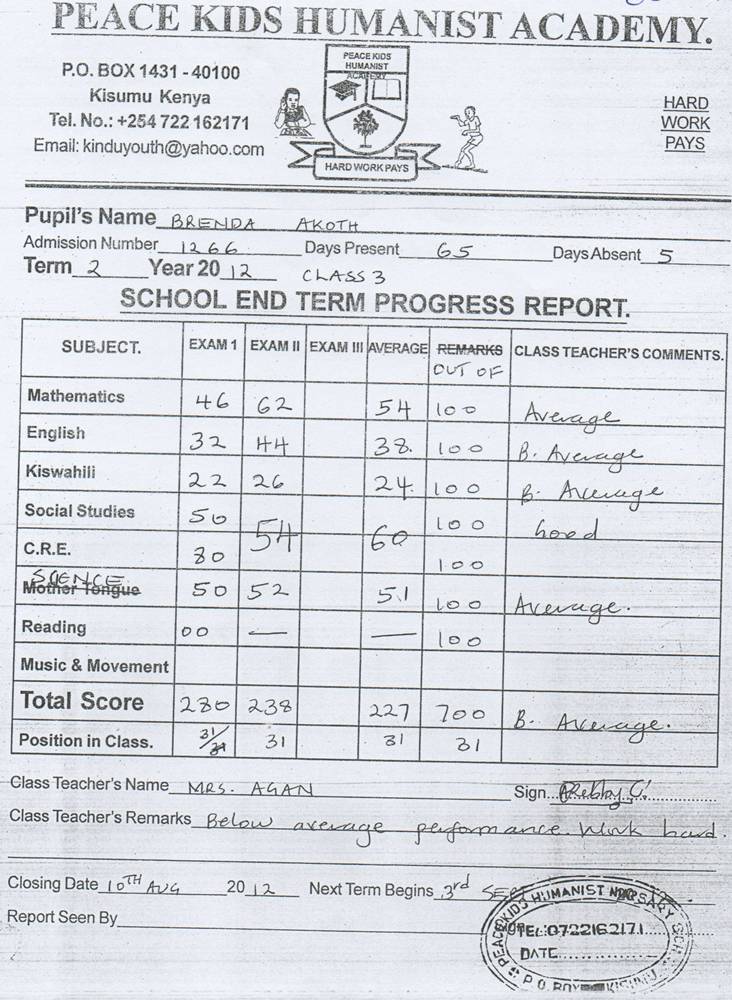 PEACE KIDS HUMANIST ACADEMY.
P.O. BOX 1431 - 40100
Kisumu Kenya
Tel. No.: +254 722 162171
Email: kinduyouth@yahoo.com
PEACE KIDS
HUMANIST
ACADEMY
HARD WORK PAYS
HARD
WORK
PAYS
Pupil's Name BRENDA AKOTH
Admission Number 1266 Days Present 65 Days Absent 5
Term 2 Year 20 12 CLASS 3
SCHOOL END TERM PROGRESS REPORT.
SUBJECT. EXAM 1 EXAM II EXAM III AVERAGE REMARKS OUT OF CLASS TEACHER'S COMMENTS.
Mathematics 46 62 54 100 Average
English 32 44 38. 100 B. Average
Kiswahili 22 26 24. 100 B. Average
Social Studies 50 54 60 100 Good
C.R.E. 80 100
SCIENCE Mother Tongue 50 52 51 100 Average.
Reading 00 — — 100
Music & Movement
Total Score 280 238 227 700 B. Average.
Position in Class. 31/31 31 31 31
Class Teacher's Name MRS. AGAN Sign...
Class Teacher's Remarks Below average performance. Work hard.
Closing Date 10TH AUG 20 12 Next Term Begins 3rd SEP
Report Seen By
PEACE KIDS HUMANIST NURSARY SCH
TEL: 0722162171
DATE
P.O. BOX KISUMU